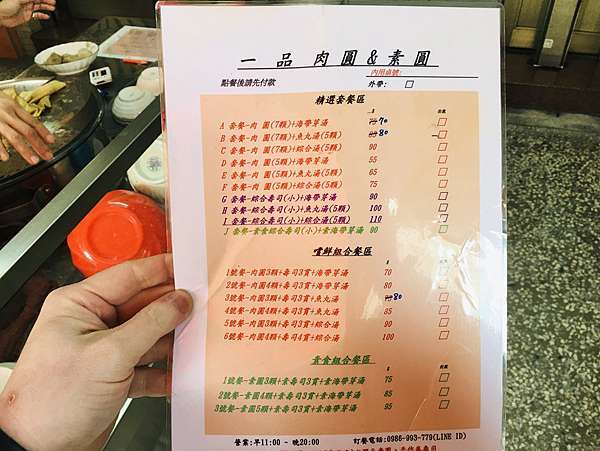 一 品 肉 圓 & 素 圓
點餐後請先付款
內用桌號:
外帶: □
精選套餐區
A 套餐-肉 圓(7顆)+海帶芽湯 75 70 □
B 套餐-肉 圓(7顆)+魚丸湯(5顆) 80 □
C 套餐-肉 圓(7顆)+綜合湯(5顆) 90 □
D 套餐-肉 圓(5顆)+海帶芽湯 55 □
E 套餐-肉 圓(5顆)+魚丸湯(5顆) 65 □
F 套餐-肉 圓(5顆)+綜合湯(5顆) 75 □
G 套餐-綜合壽司(小)+海帶芽湯 90 □
H 套餐-綜合壽司(小)+魚丸湯(5顆) 100 □
I 套餐-綜合壽司(小)+綜合湯(5顆) 110 □
J 套餐-素食綜合壽司(小)+素海帶芽湯 90 □
嚐鮮組合餐區
1號餐-肉圓3顆+壽司3貫+海帶芽湯 70 □
2號餐-肉圓4顆+壽司3貫+海帶芽湯 80 □
3號餐-肉圓3顆+壽司3貫+魚丸湯 80 □
4號餐-肉圓4顆+壽司3貫+魚丸湯 85 □
5號餐-肉圓3顆+壽司3貫+綜合湯 90 □
6號餐-肉圓4顆+壽司4貫+綜合湯 100 □
素食組合餐區
1號餐-素圓3顆+素壽司3貫+素海帶芽湯 75 □
2號餐-素圓4顆+素壽司3貫+素海帶芽湯 85 □
3號餐-素圓5顆+素壽司3貫+素海帶芽湯 95 □
營業:早11:00 - 晚20:00 訂餐電話:0986-993-779(LINE ID)